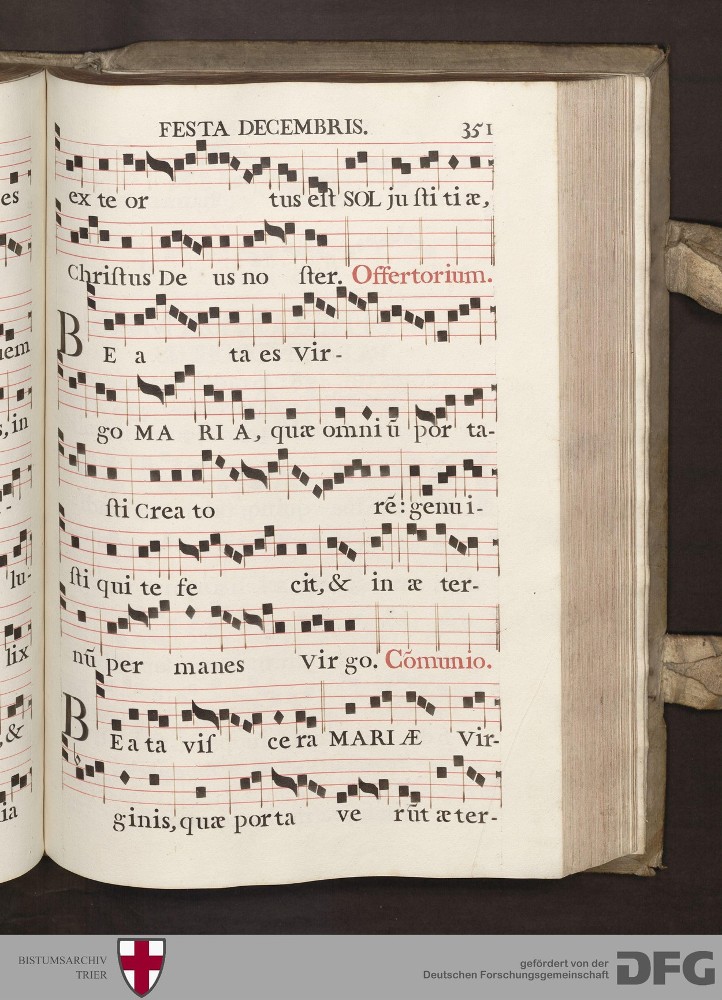 FESTA DECEMBRIS. 351
es ex te or tus eſt SOL ju ſti ti æ,
Chriſtus De us no ſter. Offertorium.
uem BE a ta es Vir-
s, in go MARIA, quæ omniū por ta-
ſti Crea to rẽ: genu i-
lu- ſti qui te fe cit, & in æ ter-
lix nũ per manes Vir go. Cõmunio.
, & BEata viſ ce ra MARIÆ Vir-
ia ginis, quæ por ta ve rũt æ ter-
BISTUMSARCHIV
TRIER
gefördert von der
Deutschen Forschungsgemeinschaft
DFG